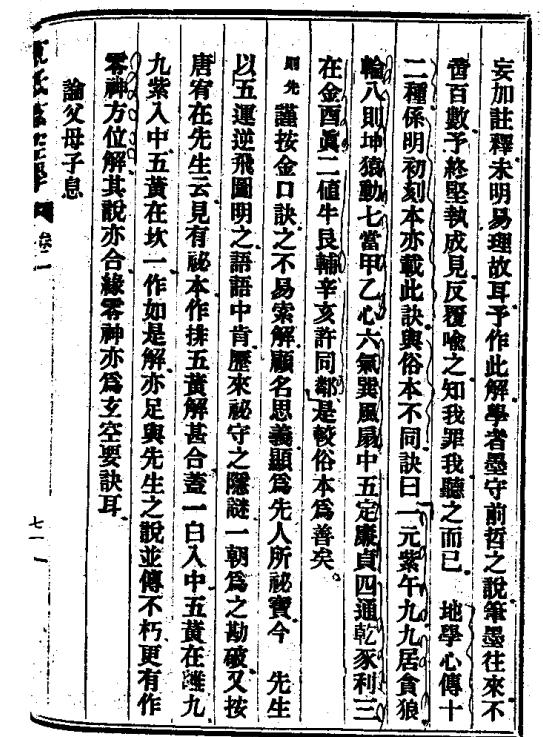 妄加註釋未明易理故耳予作此解學者墨守前哲之說筆墨往來不
啻百數予終堅執成見反覆喻之知我罪我聽之而已　地學心傳十
二種係明初刻本亦載此訣與俗本不同訣曰一元紫午九九居貪狼
輪八則坤猿動七當甲乙心六氣巽風扇中五定廉貞四通乾豕利三
在金酉眞二値牛艮輔辛亥許同鄰是較俗本爲善矣。
則先 謹按金口訣之不易索解顧名思義顯爲先人所祕寶今　先生
以五運逆飛圖明之語語中肯歷來祕守之隱謎一朝爲之勘破又按
唐宥在先生云見有祕本作排五黃解甚合蓋一白入中五黃在離九
九紫入中五黃在坎一作如是解亦足與先生之說並傳不朽更有作
零神方位解其說亦合緣零神亦爲玄空要訣耳
論父母子息
卷二
七一